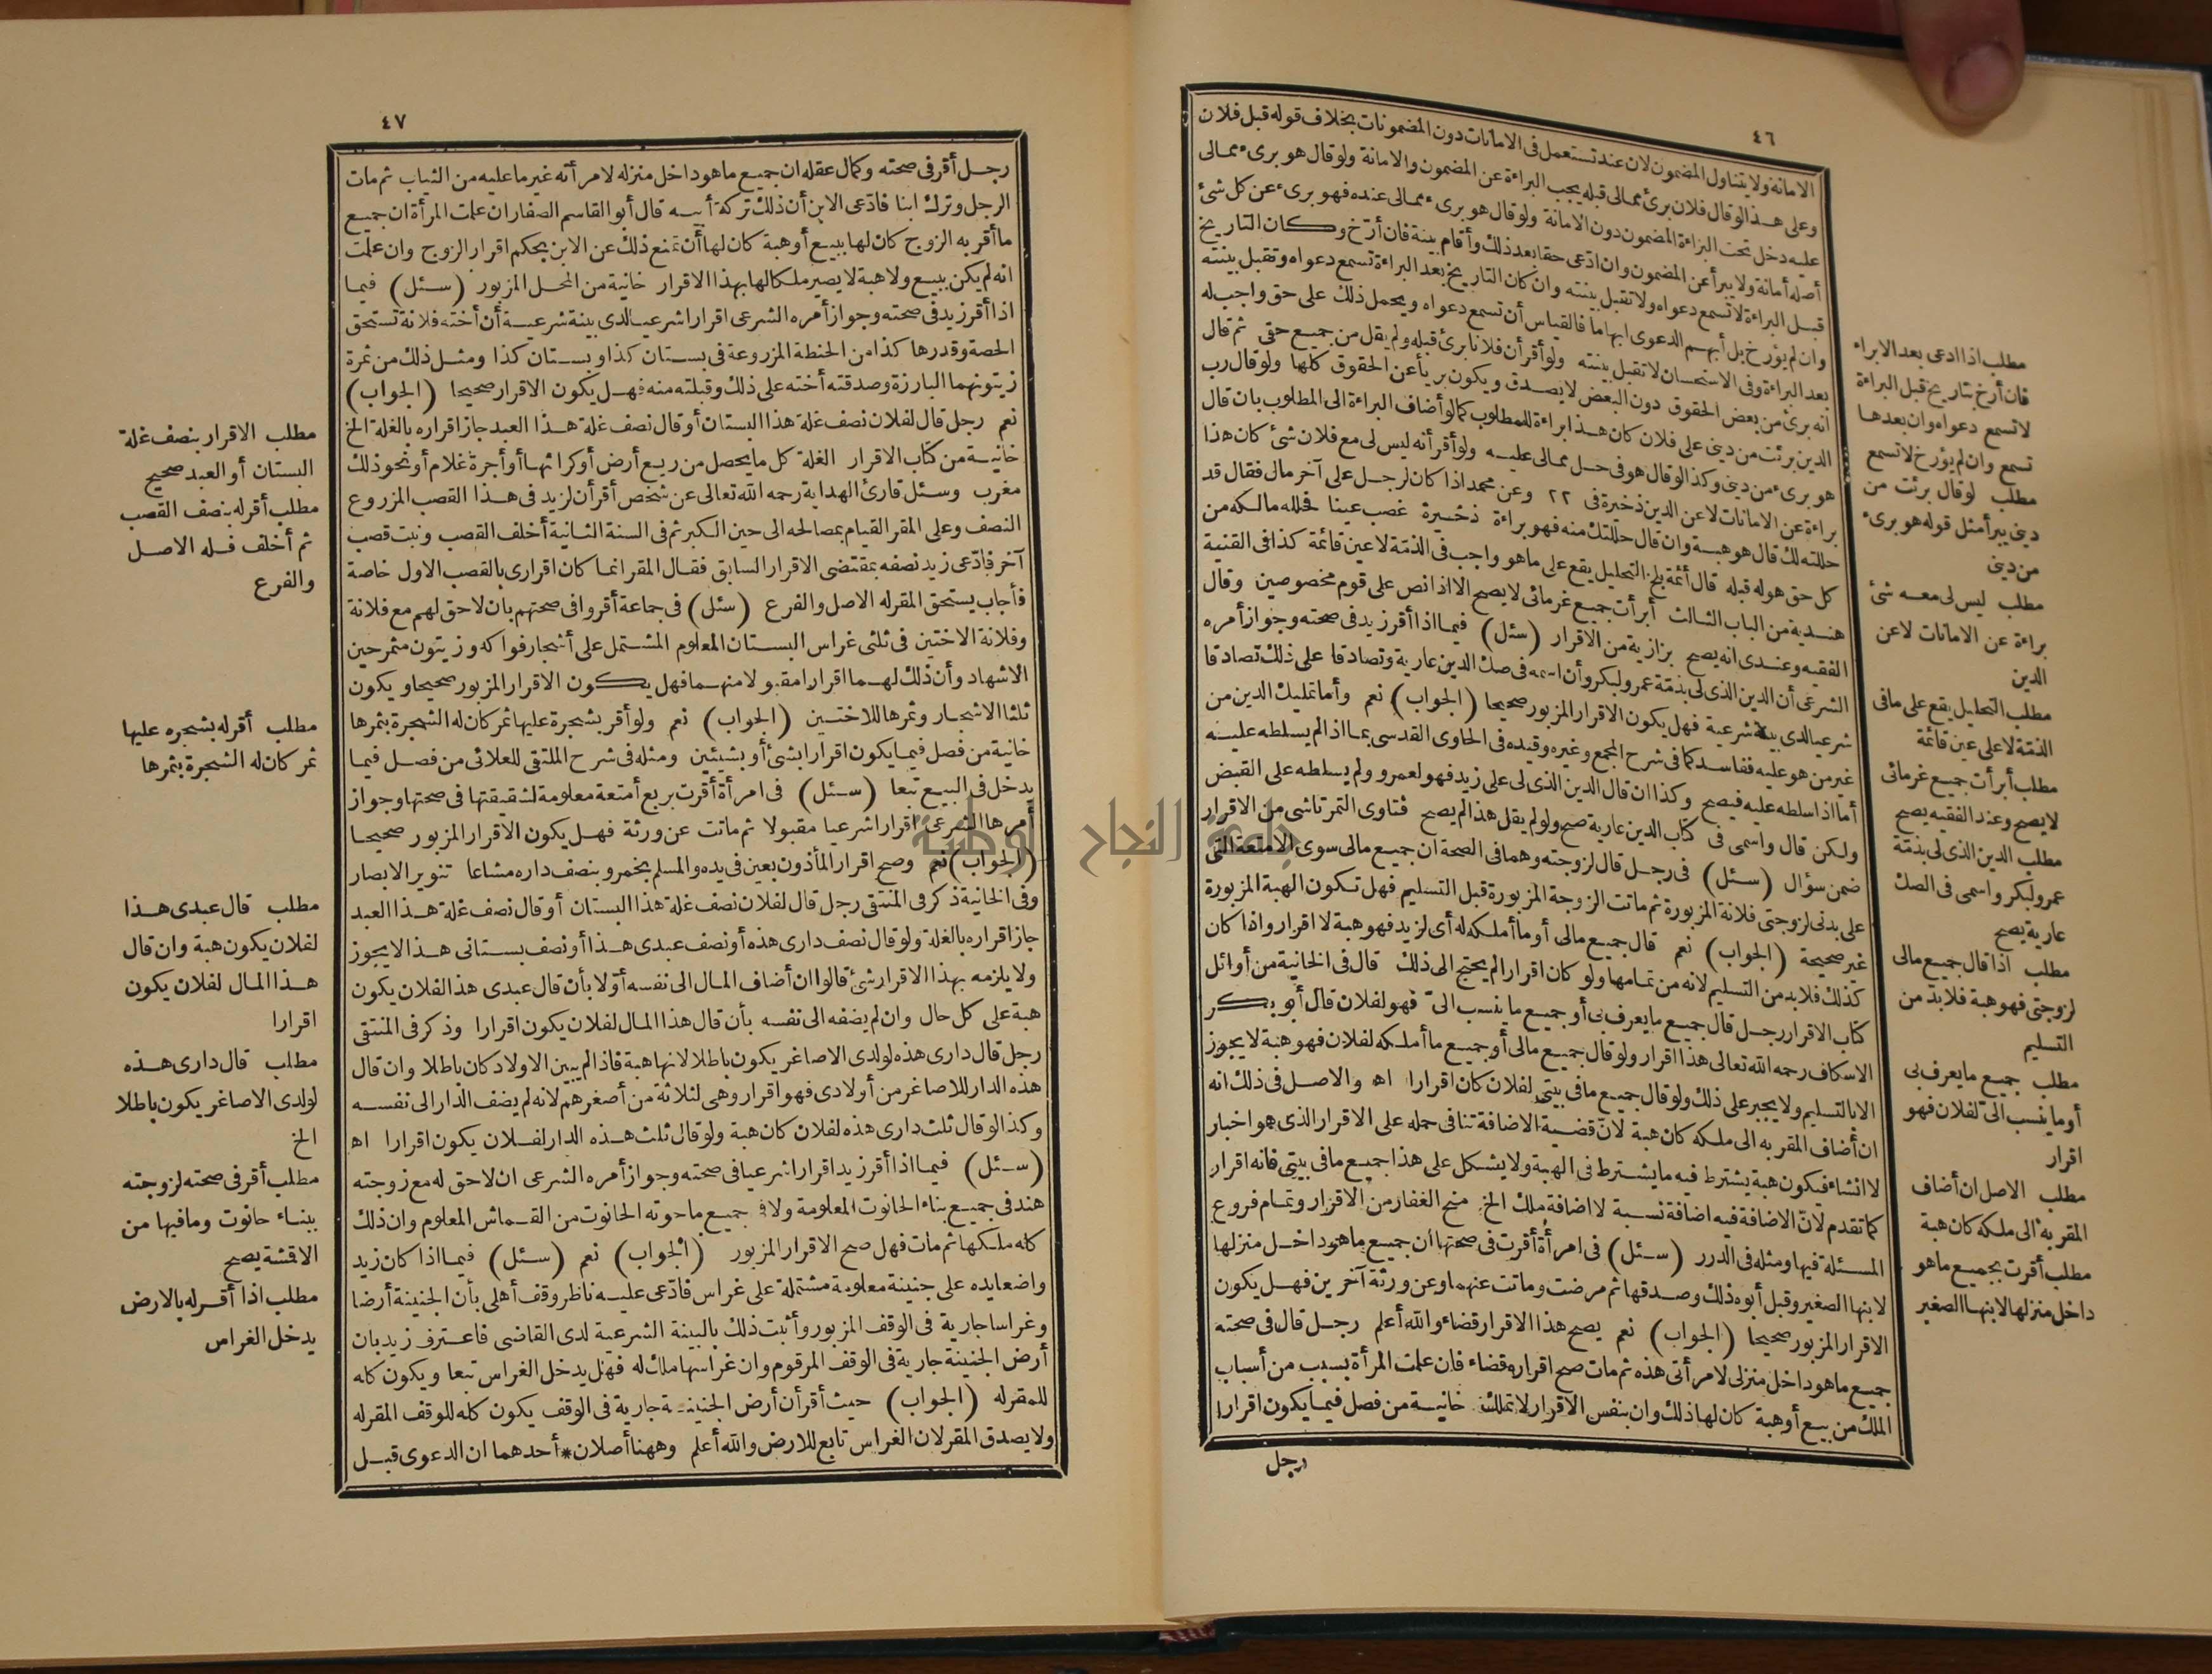 ٤٦
الامانة ولا يتناول المضمون لان عند تستعمل فى الامانات دون المضمونات بخلاف قوله قبل فلان
وعلى هذا لو قال فلان برئ ممالى قبله يجب البراءة عن المضمون والامانة ولو قال هو برىء ممالى
عليه دخل تحت البراءة المضمون دون الامانة ولو قال هو برىء ممالى عنده فهو برىء عن كل شئ
أصله أمانة ولا يبرأ عن المضمون وان ادّعى حقا بعد ذلك وأقام بينة فان أرّخ وكان التاريخ
قبل البراءة لا تسمع دعواه ولا تقبل بينته وان كان التاريخ بعد البراءة تسمع دعواه وتقبل بينته
وان لم يؤرخ بل أبهم الدعوى ابهاما فالقياس أن تسمع دعواه ويحمل ذلك على حق واجب له
بعد البراءة وفى الاستحسان لا تقبل بينته ولو أقرأن فلانا برئ قبله ولم يقل من جميع حقى ثم قال
انه برئ من بعض الحقوق دون البعض لا يصدق ويكون بريأ عن الحقوق كلها ولو قال رب
الدين برئت من دينى على فلان كان هذا براءة للمطلوب كما لو أضاف البراءة الى المطلوب بان قال
هو برىء من دينى وكذا لو قال هو فى حل ممالى عليه ولو أقر أنه ليس لى مع فلان شئ كان هذا
براءة عن الامانات لا عن الدين ذخيرة فى ٢٢ وعن محمد اذا كان لرجل على آخر مال فقال قد
حللته لك قال هو هبة وان قال حللتك منه فهو براءة ذخيرة غصب عينا فحلله مالكه من
كل حق هو له قبله قال أئمة بلخ التحليل يقع على ما هو واجب فى الذمة لا عين قائمة كذا فى القنية
هندية من الباب الثالث أبرأت جميع غرمائى لا يصح الا اذا نص على قوم مخصوصين وقال
الفقيه وعندى انه يصح بزازية من الاقرار (سئل) فيما اذا أقر زيد فى صحته وجواز أمره
الشرعى أن الدين الذى لى بذمّة عمرو لبكر وأن اسمه فى صك الدين عارية وتصادقا على ذلك تصادقا
شرعيا لدى بينة شرعية فهل يكون الاقرار المزبور صحيحا (الجواب) نعم وأما تمليك الدين من
غير من هو عليه ففاسد كما فى شرح المجمع وغيره وقيده فى الحاوى القدسى بما اذا لم يسلطه عليه
أما اذا سلطه عليه فيصح وكذا ان قال الدين الذى لى على زيد فهو لعمرو ولم يسلطه على القبض
ولكن قال واسمى فى كتاب الدين عارية صح ولو لم يقل هذا لم يصح فتاوى التمرتاشى من الاقرار
ضمن سؤال (سئل) فى رجل قال لزوجته وهما فى الصحة ان جميع مالى سوى الامتعة التى
على بدنى لزوجتى فلانة المزبورة ثم ماتت الزوجة المزبورة قبل التسليم فهل تكون الهبة المزبورة
غير صحيحة (الجواب) نعم قال جميع مالى أو ما أملكه له أى لزيد فهو هبة لا اقرار واذا كان
كذلك فلا بد من التسليم لانه من تمامها ولو كان اقرارا لم يحتج الى ذلك قال فى الخانية من أوائل
كتاب الاقرار رجل قال جميع ما يعرف بى أو جميع ما ينسب الىّ فهو لفلان قال أبو بكر
الاسكاف رحمه الله تعالى هذا اقرار ولو قال جميع مالى أو جميع ما أملكه لفلان فهو هبة لا يجوز
الا بالتسليم ولا يجبر على ذلك ولو قال جميع ما فى بيتى لفلان كان اقرارا اه والاصل فى ذلك انه
ان أضاف المقر به الى ملكه كان هبة لان قضية الاضافة تنافى حمله على الاقرار الذى هو اخبار
لا انشاء فيكون هبة يشترط فيه ما يشترط فى الهبة ولا يشكل على هذا جميع ما فى بيتى فانه اقرار
كما تقدم لان الاضافة فيه اضافة نسبة لا اضافة ملك الخ منح الغفار من الاقرار وتمام فروع
المسئلة فيها ومثله فى الدرر (سئل) فى امرأة أقرت فى صحتها أن جميع ما هو داخل منزلها
لابنها الصغير وقبل أبوه ذلك وصدقها ثم مرضت وماتت عنهما وعن ورثة آخرين فهل يكون
الاقرار المزبور صحيحا (الجواب) نعم يصح هذا الاقرار قضاء والله أعلم رجل قال فى صحته
جميع ما هو داخل منزلى لامرأتى هذه ثم مات صح اقراره قضاء فان علمت المرأة بسبب من أسباب
الملك من بيع أو هبة كان لها ذلك وان بنفس الاقرار لا تملك خانية من فصل فيما يكون اقرارا
رجل
مطلب اذا ادعى بعد الابراء
فان أرخ بتاريخ قبل البراءة
لا تسمع دعواه وان بعدها
تسمع وان لم يؤرخ لا تسمع
مطلب لو قال برئت من
دينى يبرأ مثل قوله هو برىء
من دينى
مطلب ليس لى معه شئ
براءة عن الامانات لا عن
الدين
مطلب التحليل يقع على ما فى
الذمة لا على عين قائمة
مطلب أبرأت جميع غرمائى
لا يصح وعند الفقيه يصح
مطلب الدين الذى لى بذمّة
عمرو لبكر واسمى فى الصك
عارية يصح
مطلب اذا قال جميع مالى
لزوجتى فهو هبة فلا بد من
التسليم
مطلب جميع ما يعرف بى
أو ما ينسب الىّ لفلان فهو
اقرار
مطلب الاصل ان أضاف
المقر به الى ملكه كان هبة
مطلب أقرت بجميع ما هو
داخل منزلها لابنها الصغير
٤٧
رجل أقر فى صحته وكمال عقله ان جميع ما هو داخل منزله لامرأته غير ما عليه من الثياب ثم مات
الرجل وترك ابنا فادّعى الابن أن ذلك تركة أبيه قال أبو القاسم الصفار ان علمت المرأة ان جميع
ما أقر به الزوج كان لها ببيع أو هبة كان لها أن تمنع ذلك عن الابن بحكم اقرار الزوج وان علمت
انه لم يكن ببيع ولا هبة لا يصير ملكا لها بهذا الاقرار خانية من المحل المزبور (سئل) فيما
اذا أقر زيد فى صحته وجواز أمره الشرعى اقرارا شرعيا لدى بينة شرعية أن أخته فلانة تستحق
الحصة وقدرها كذا من الحنطة المزروعة فى بستان كذا وبستان كذا ومثل ذلك من ثمرة
زيتونهما البارزة وصدقته أخته على ذلك وقبلته منه فهل يكون الاقرار صحيحا (الجواب)
نعم رجل قال لفلان نصف غلة هذا البستان أو قال نصف غلة هذا العبد جاز اقراره بالغلة الخ
خانية من كتاب الاقرار الغلة كل ما يحصل من ريع أرض أو كرائها أو أجرة غلام أو نحو ذلك
مغرب وسئل قارئ الهداية رحمه الله تعالى عن شخص أقر أن لزيد فى هذا القصب المزروع
النصف وعلى المقر القيام بمصالحه الى حين الكبر ثم فى السنة الثانية أخلف القصب ونبت قصب
آخر فادّعى زيد نصفه بمقتضى الاقرار السابق فقال المقر انما كان اقرارى بالقصب الاول خاصة
فأجاب يستحق المقر له الاصل والفرع (سئل) فى جماعة أقروا فى صحتهم بان لا حق لهم مع فلانة
وفلانة الاختين فى ثلثى غراس البستان المعلوم المشتمل على أشجار فواكه وزيتون مثمر حين
الاشهاد وأن ذلك لهما اقرارا مقبولا منهما فهل يكون الاقرار المزبور صحيحا ويكون
ثلثا الاشجار وثمرها للاختين (الجواب) نعم ولو أقر بشجرة عليها ثمر كان له الشجرة بثمرها
خانية من فصل فيما يكون اقرارا بشئ أو بشيئين ومثله فى شرح الملتقى للعلائى من فصل فيما
يدخل فى البيع تبعا (سئل) فى امرأة أقرت بربع أمتعة معلومة لشقيقتها فى صحتها وجواز
أمرها الشرعى اقرارا شرعيا مقبولا ثم ماتت عن ورثة فهل يكون الاقرار المزبور صحيحا
(الجواب) نعم وصح اقرار المأذون بعين فى يده والمسلم بخمر وبنصف داره مشاعا تنوير الابصار
وفى الخانية ذكر فى المنتقى رجل قال لفلان نصف غلة هذا البستان أو قال نصف غلة هذا العبد
جاز اقراره بالغلة ولو قال نصف دارى هذه أو نصف عبدى هذا أو نصف بستانى هذا لا يجوز
ولا يلزمه بهذا الاقرار شئ قالوا ان أضاف المال الى نفسه أوّلا بأن قال عبدى هذا لفلان يكون
هبة على كل حال وان لم يضفه الى نفسه بأن قال هذا المال لفلان يكون اقرارا وذكر فى المنتقى
رجل قال دارى هذه لولدى الاصاغر يكون باطلا لانها هبة فاذا لم يبين الاولاد كان باطلا وان قال
هذه الدار للاصاغر من أولادى فهو اقرار وهى لثلاثة من أصغرهم لانه لم يضف الدار الى نفسه
وكذا لو قال ثلث دارى هذه لفلان كان هبة ولو قال ثلث هذه الدار لفلان يكون اقرارا اه
(سئل) فيما اذا أقر زيد اقرارا شرعيا فى صحته وجواز أمره الشرعى ان لا حق له مع زوجته
هند فى جميع بناء الحانوت المعلومة ولا فى جميع ما حوته الحانوت من القماش المعلوم وان ذلك
كله ملكها ثم مات فهل صح الاقرار المزبور (الجواب) نعم (سئل) فيما اذا كان زيد
واضعا يده على جنينة معلومة مشتملة على غراس فادّعى عليه ناظر وقف أهلى بأن الجنينة أرضا
وغراسا جارية فى الوقف المزبور وأثبت ذلك بالبينة الشرعية لدى القاضى فاعترف زيد بان
أرض الجنينة جارية فى الوقف المرقوم وان غراسها ملك له فهل يدخل الغراس تبعا ويكون كله
للمقر له (الجواب) حيث أقر أن أرض الجنينة جارية فى الوقف يكون كله للوقف المقر له
ولا يصدق المقر لان الغراس تابع للارض والله أعلم وههنا أصلان * أحدهما ان الدعوى قبل
مطلب الاقرار بنصف غلة
البستان أو العبد صحيح
مطلب أقر له بنصف القصب
ثم أخلف فله الاصل
والفرع
مطلب أقر له بشجره عليها
ثمر كان له الشجرة بثمرها
مطلب قال عبدى هذا
لفلان يكون هبة وان قال
هذا المال لفلان يكون
اقرارا
مطلب قال دارى هذه
لولدى الاصاغر يكون باطلا
الخ
مطلب أقر فى صحته لزوجته
ببناء حانوت وما فيها من
الاقمشة يصح
مطلب اذا أقر له بالارض
يدخل الغراس
جامعة النجاح الوطنية